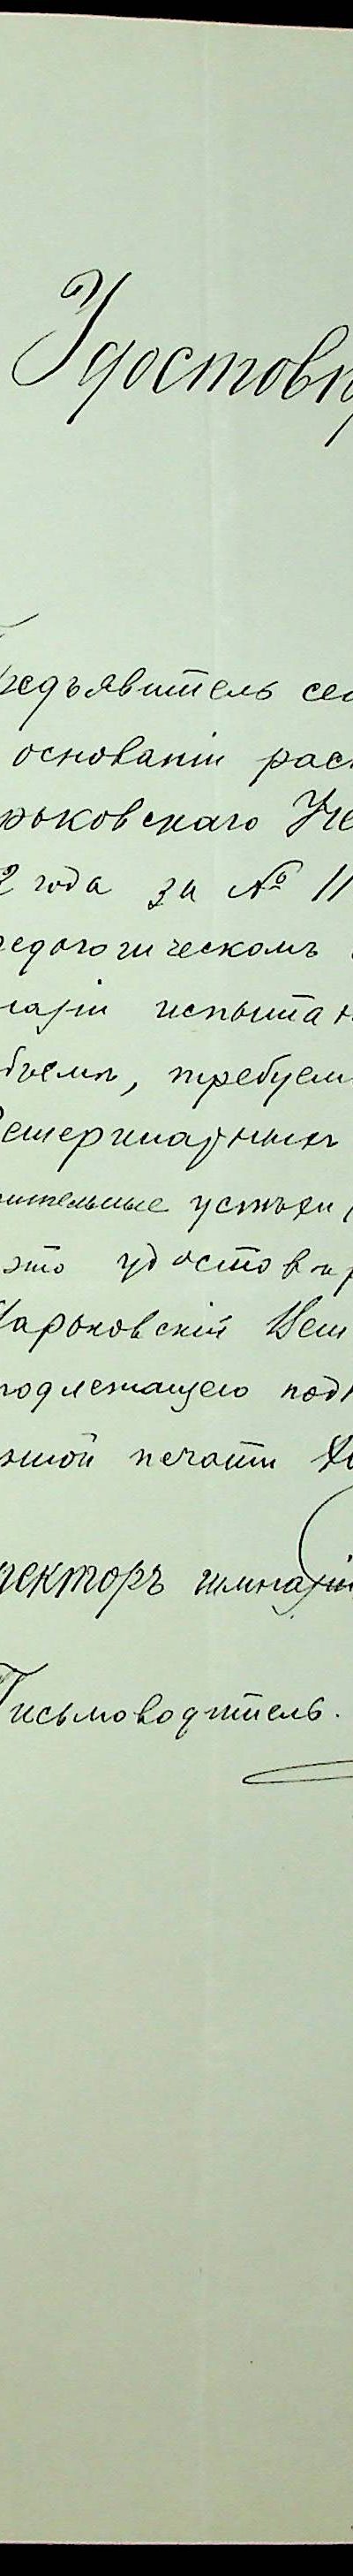 Удостовѣ
Предъявитель сег
основаніи рас
рьковскаго Уче
2 года за № 11
педагогическомъ
назіи испытан
бъемѣ, требуем
Ветеринарныхъ
рительные успѣхи
это удостовѣр
Харьковскій Вет
подлежащею под
енной печати Ха
ректоръ гимназіи
Письмоводитель.